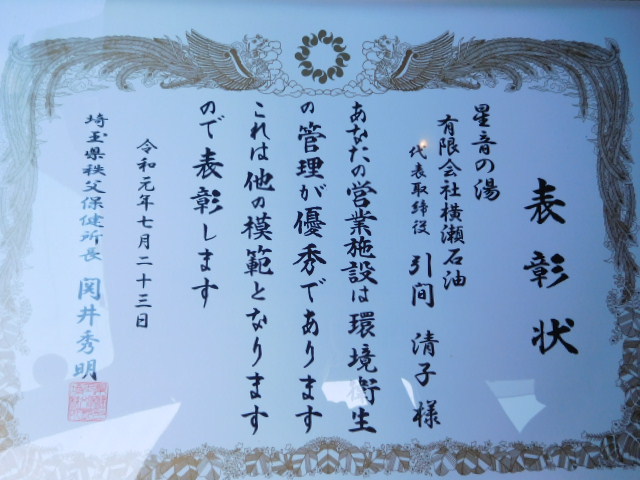 表彰状
星音の湯
有限会社横瀬石油
代表取締役 引間 清子 様
あなたの営業施設は環境衛生
の管理が優秀であります
これは他の模範となります
ので表彰します
令和元年七月二十三日
埼玉県秩父保健所長 関井秀明